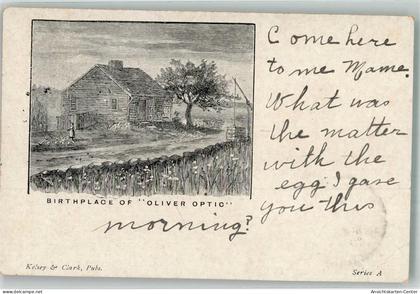 Come here
to me Mame.
What was
the matter
with the
egg I gave
you this
morning?
BIRTHPLACE OF "OLIVER OPTIC"
Kelsey & Clark, Pubs.
Series A
www.ansichtskarten-center.de
Ansichtskarten-Center.com